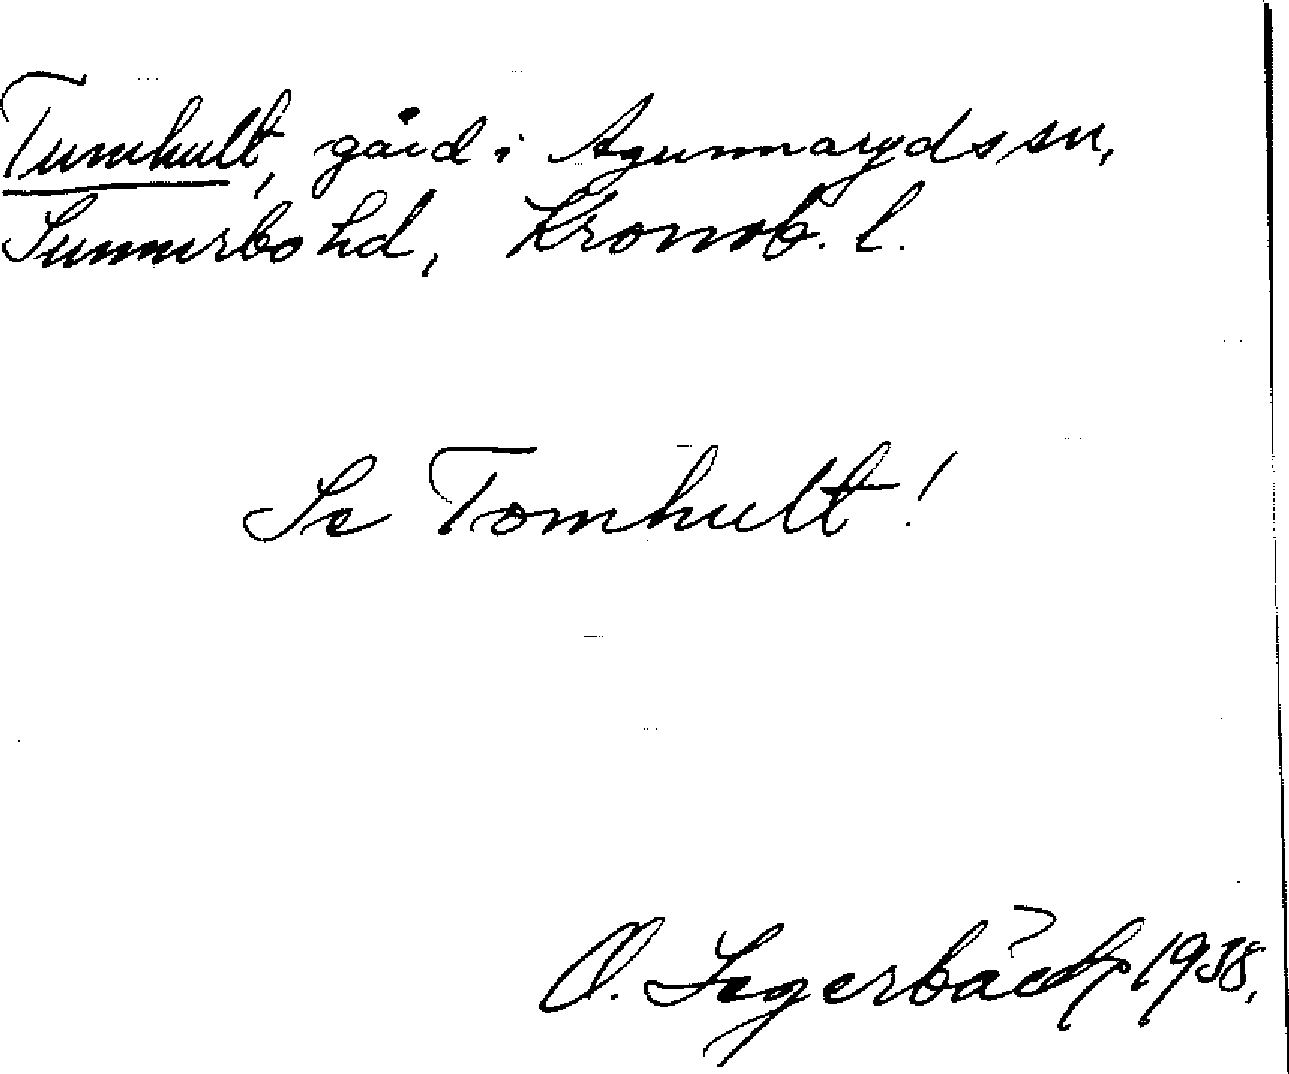 Tumhult, gård i Agunnarydssn,
Sunnerbo hd, Kronob. l.
Se Tomhult!
O. Segerbäck 1938.